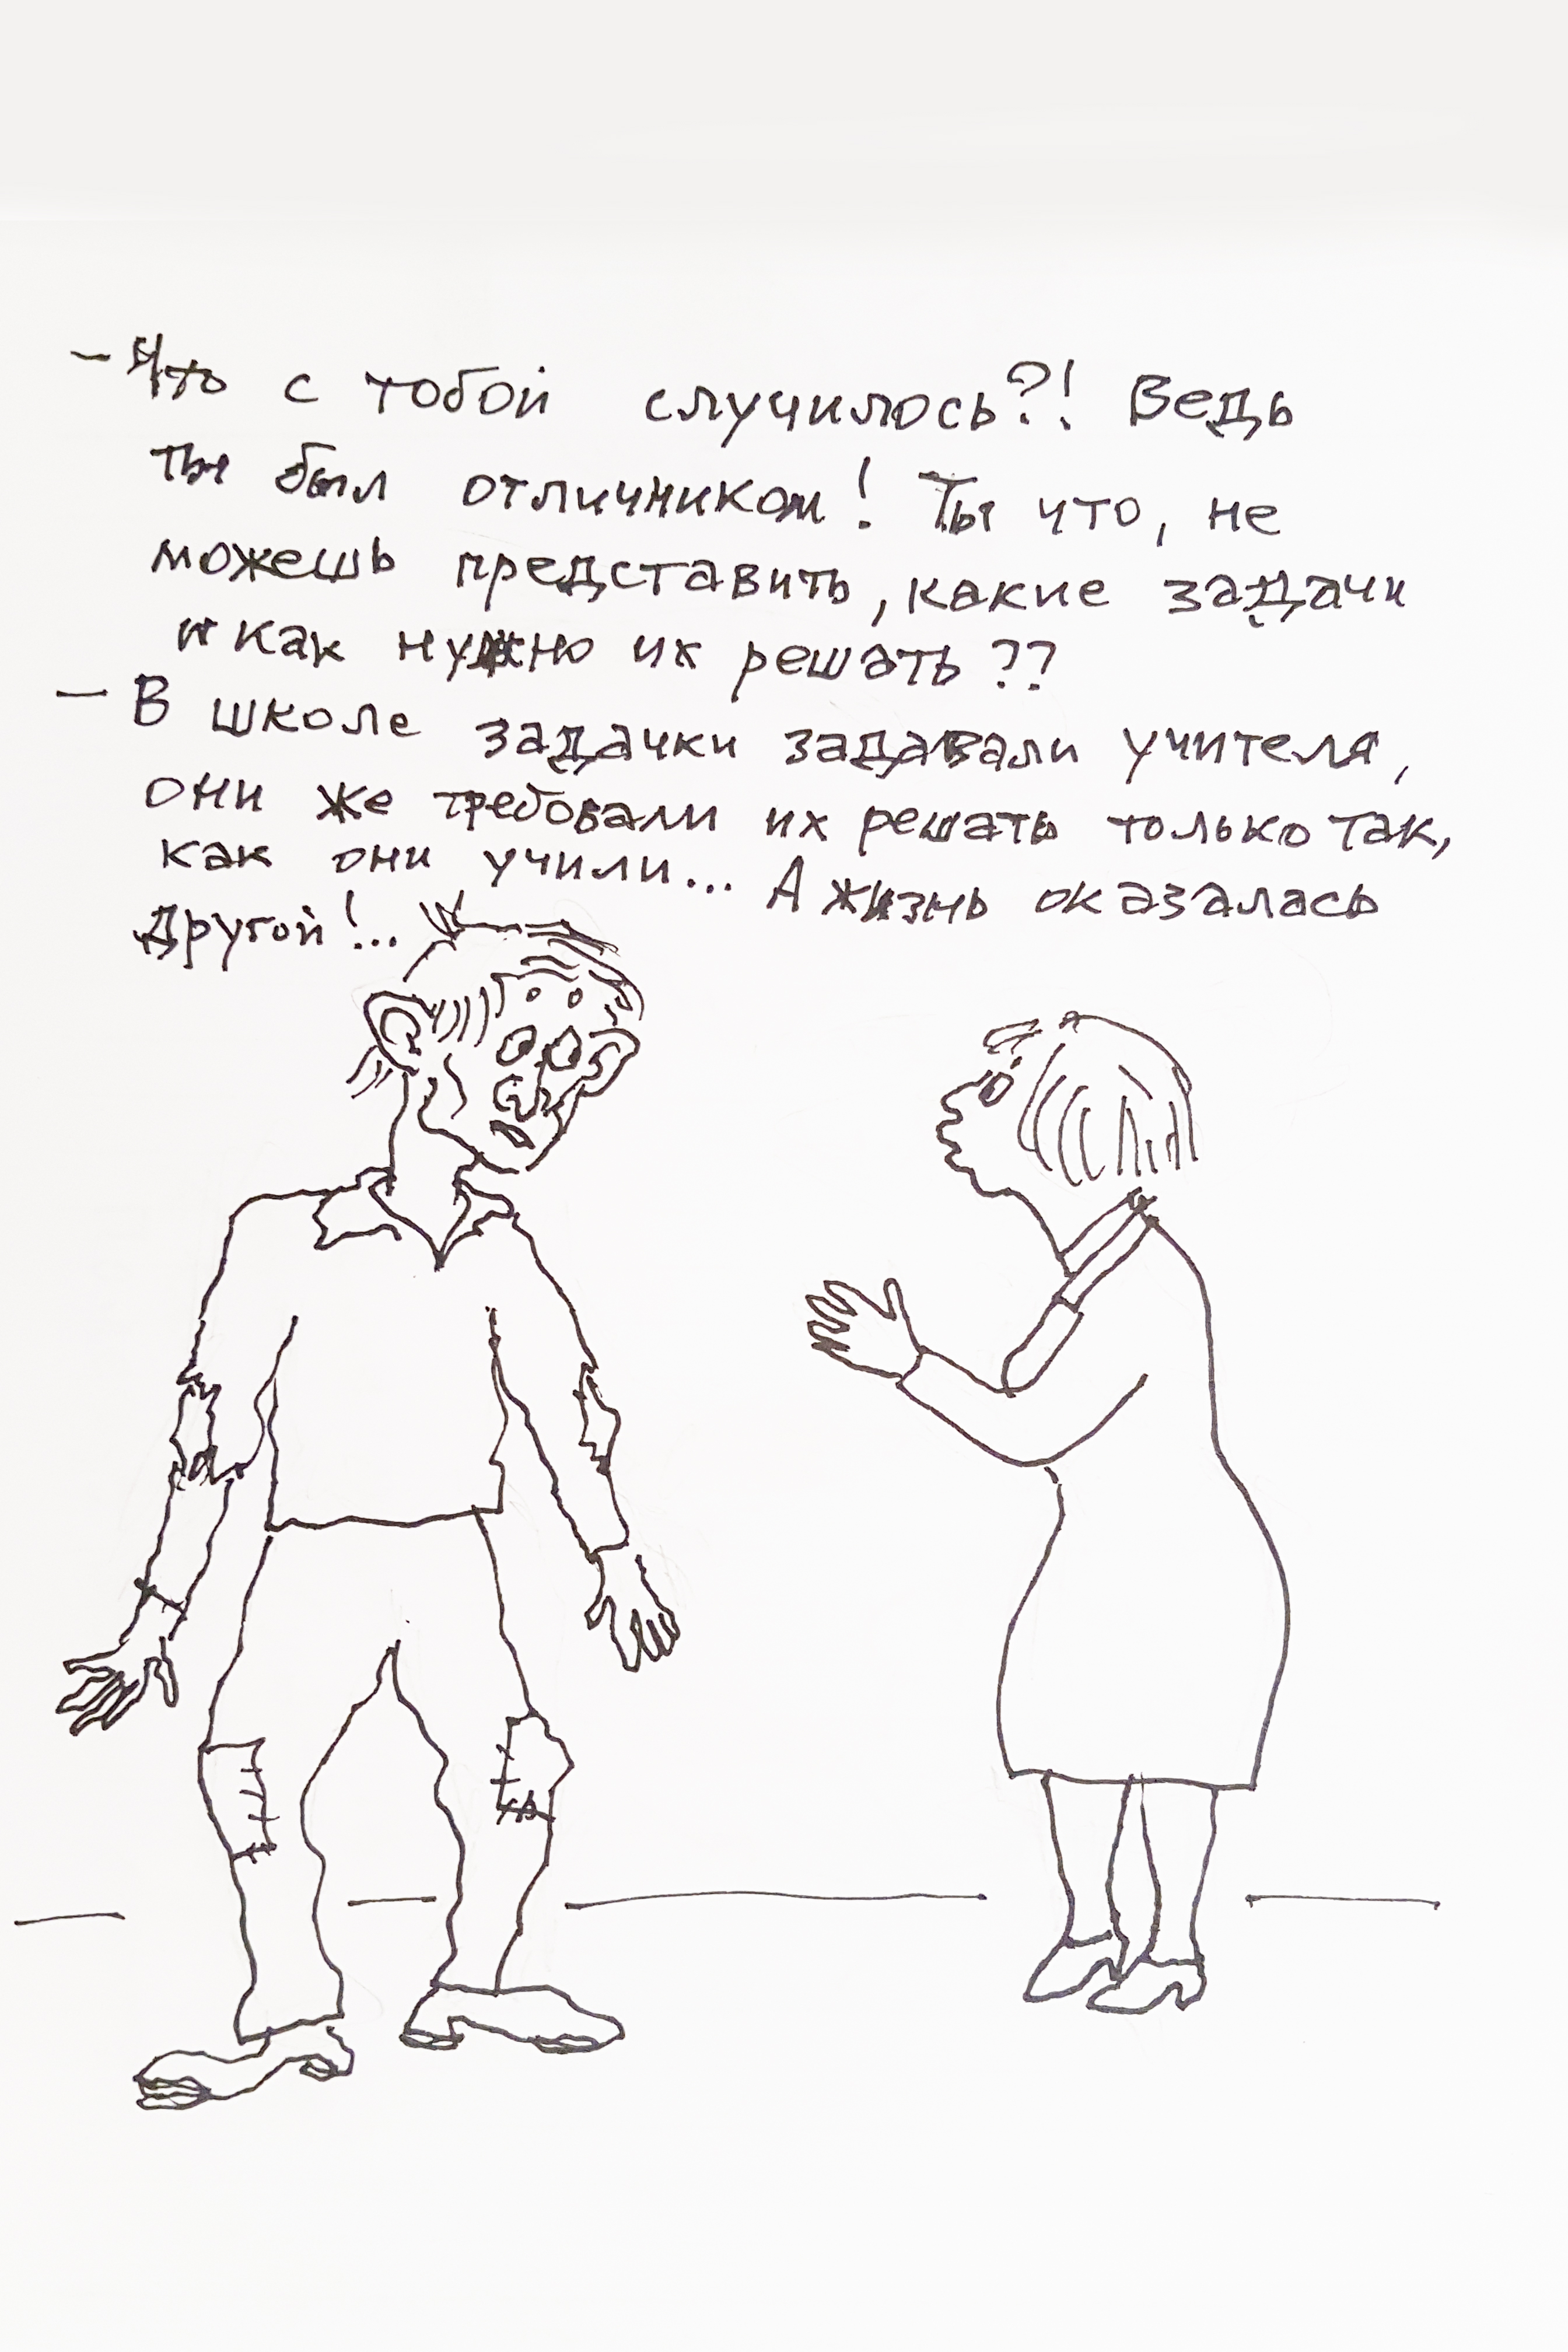 – Что с тобой случилось?! Ведь
ты был отличником! Ты что, не
можешь представить, какие задачи
и как нужно их решать??
– В школе задачки задавали учителя,
они же требовали их решать только так,
как они учили... А жизнь оказалась
другой!...